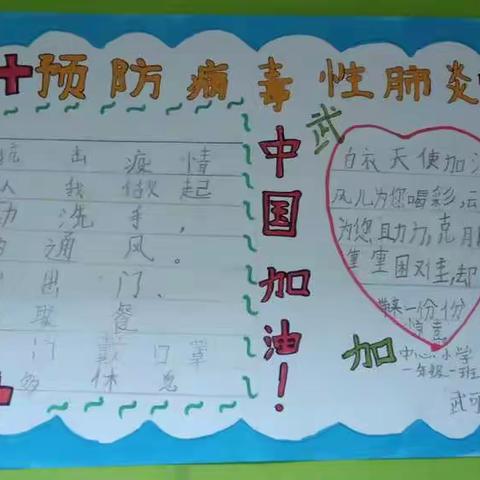 预防病毒性肺炎
抗击疫情
从我做起
勤洗手,
通风。
出门、
聚餐
门戴口罩
多休息
中国加油!
武
加
白衣天使加油
风儿为您喝彩,云
为您助力,克服
重重困难,却
带来一份份
惊喜
中心小学
一年级一班
武